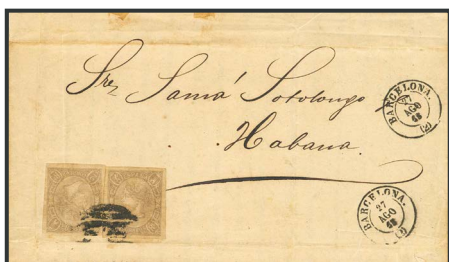 Sres Samá Sotolongo
Habana.
BARCELONA.
27
AGO
65
(2)
BARCELONA.
27
AGO
65
(2)